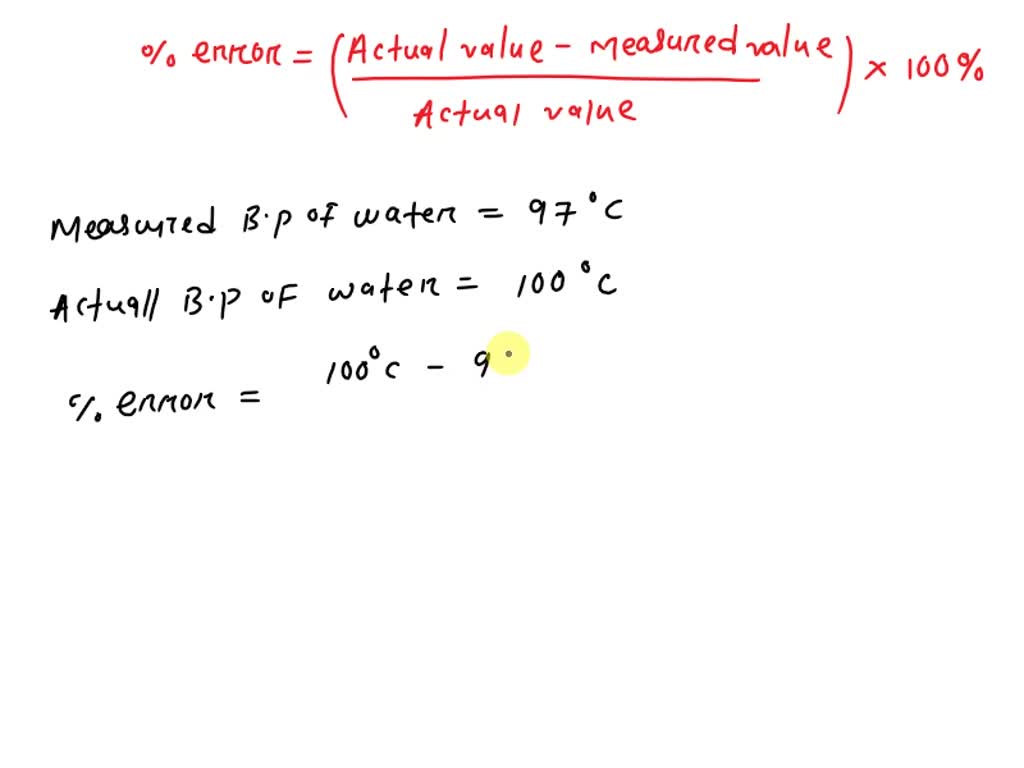 % error = (Actual value - Measured value / Actual value) × 100%
Measured B.p of water = 97°C
Actuall B.p of water = 100°C
% error = 100°C - 9